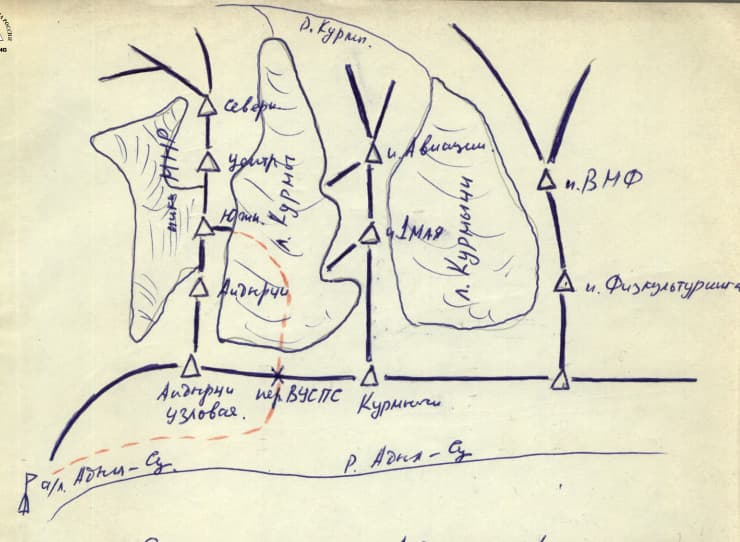 р. Курмы.
Северн.
Центр
пик МНР
л. Курмы
п. Авиации.
п. ВМФ
Южн.
п. 1 МАЯ
л. Курмычи
Айдырчи
п. Физкультурника
Айдырчи
узловая.
пер. ВУСПС
Курмычи
а/л. Адыл-Су.
Р. Адыл-Су